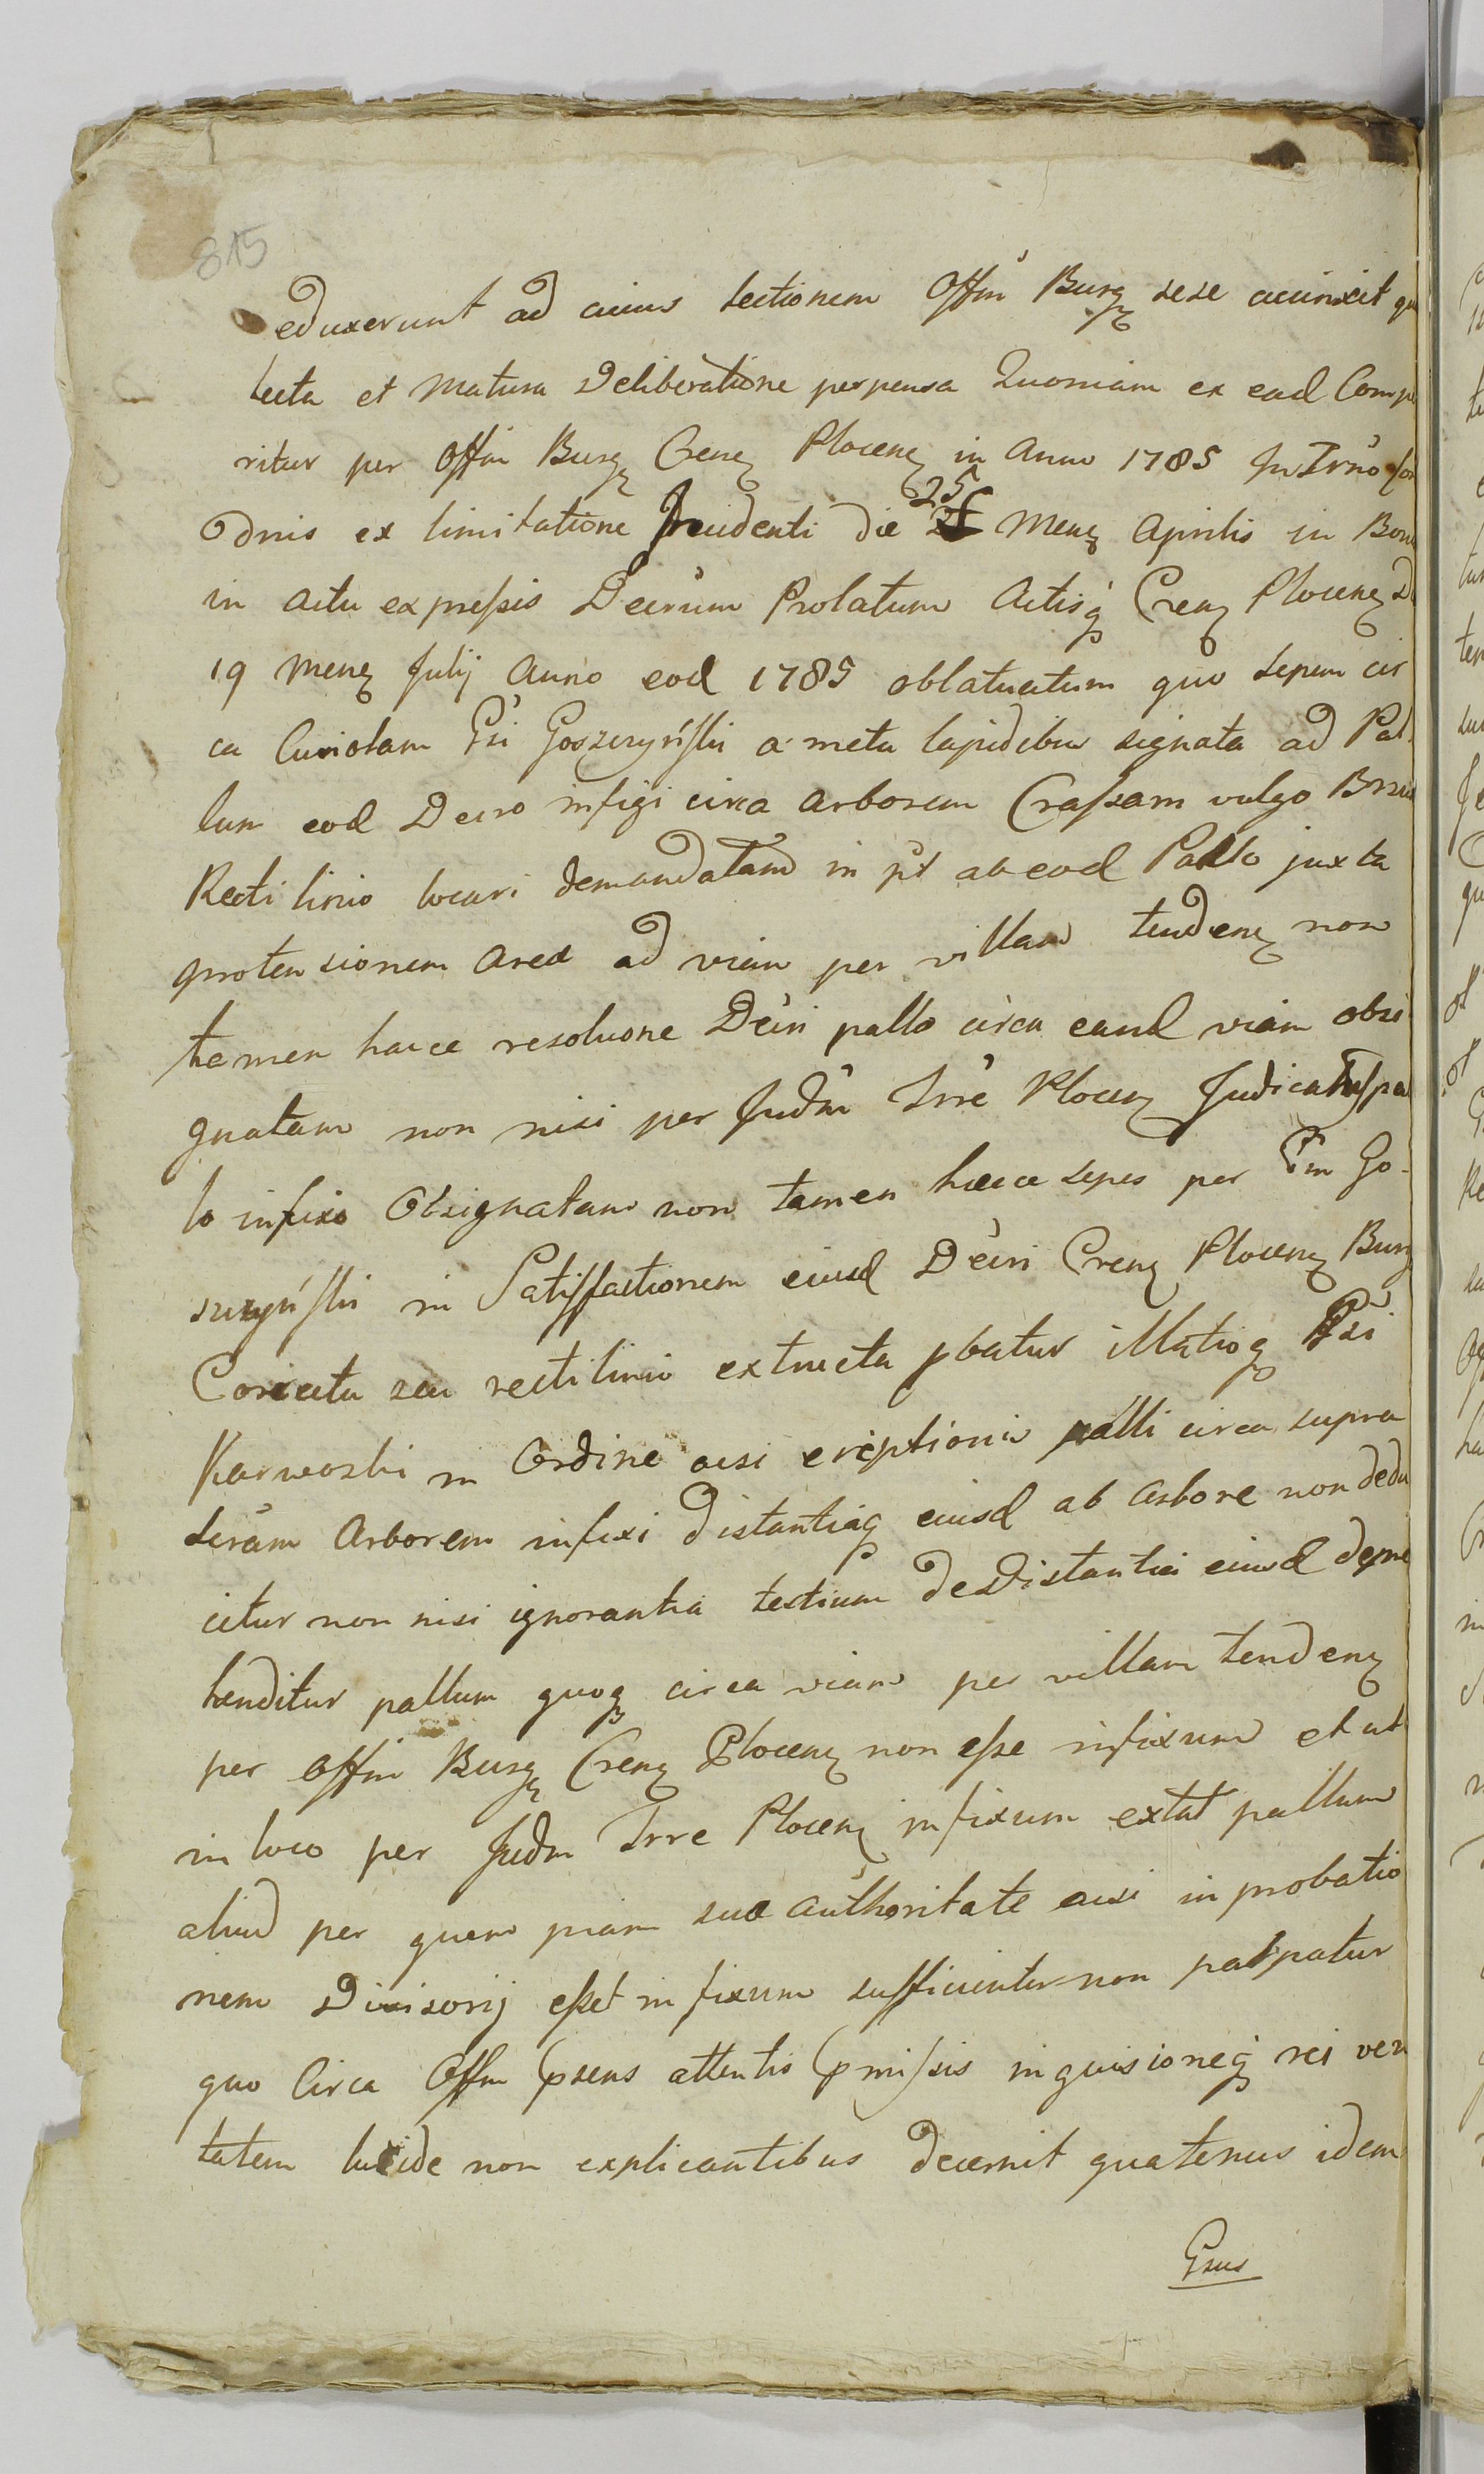 815
eduxerunt ad cuius lectionem Offm Burg sese accinxit
lecta et Matura Deliberatione perpensa Quoniam ex ead Compe
ritur per Offm Burg Crene Plocen in Anno 1785 in Trno
Odnis ex limitatione incidenti die 25 Mens Aprilis in Bon
in actu expressis Decrum Prolatum Actisq Cren Plocen D
19 Mens Julij Anno eod 1785 oblatucitum quo sepem cir
ca Curiolam Gsi Goszczynski a meta lapidibus signata ad Pal
lum eod Decro infigi circa arborem Crassam vulgo
Recti linio locari demandatam in pt ab eod Pallo juxta
protensionem area ad viam per villam tenden non
tamen haece resoluone Decri pallo circa eand viam obsi
gnatam non nisi per Judm Trre Plocen Judicatus pa
lo infixo Obsignatam non tamen haece sepes per Gm Go-
szczynski in Satisfactionem eiusd Decri Cren Plocen Burg
Coriecta seu rectilinio extructa pbatur illatioq Gsi
Karwoski in Ordine acsi ereptionis palli circa supra
scram Arborem infixi distantiaq eiusd ab Arbore non dedu
citur non nisi ignorantia testium de distantia eiusd depre
henditur pallum quoq circa viam per villam tenden
per Offm Burg Cren Plocen non esse infixum et ut
in loco per Judm Trre Plocen infixum extat pallum
aliud per quem piam sua authoritate acsi in probatio
nem Divisorij esset infixum sufficienter non palpatur
quo Circa Offm psens attentis pmissis inquisioneq rei veri
tatem lucide non explicantibus decernit quatenus idem
Gsus